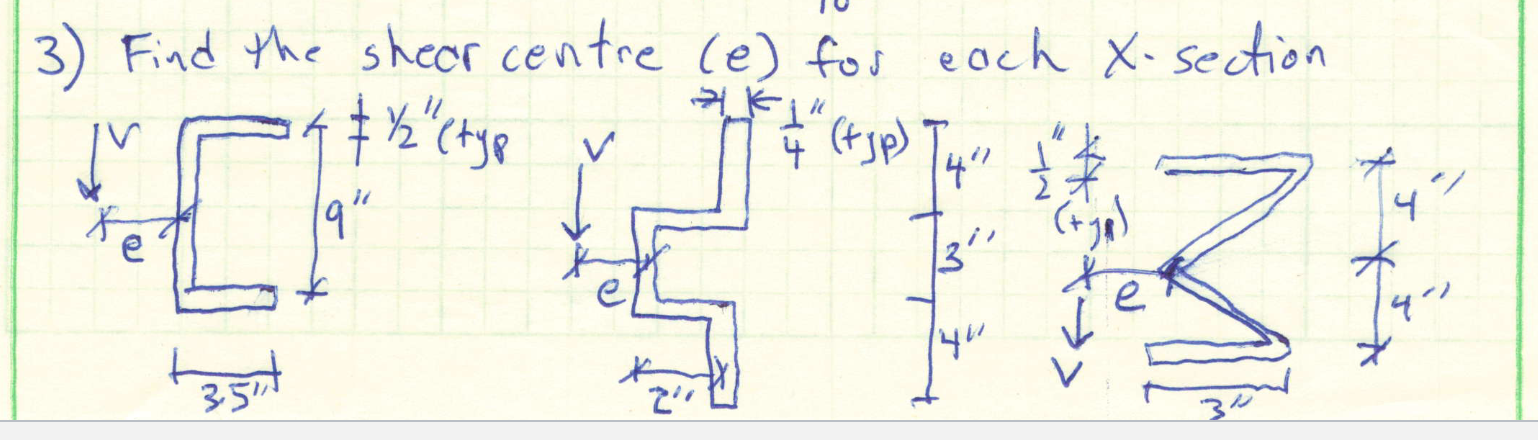 3) Find the shear centre (e) for each X-section
V
e
1/2" (typ
9"
3.5"
V
e
1/4" (typ)
4"
3"
4"
2"
1/2"
(typ)
e
V
4"
4"
3"